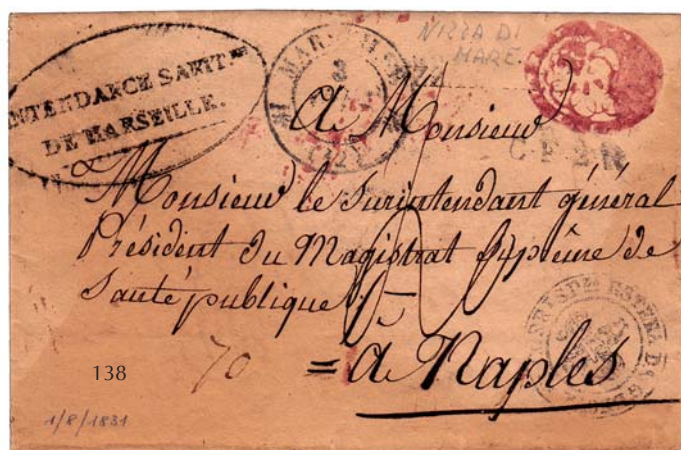 NIZZA DI
MARE.
INTENDANCE SANIT.RE
DE MARSEILLE.
MARSEILLE
3
(12)
C.F.2.R
A Monsieur
Monsieur le Surintendant général
Président du Magistrat Suprême de
Santé publique
= à Naples
70
138
1/8/1831